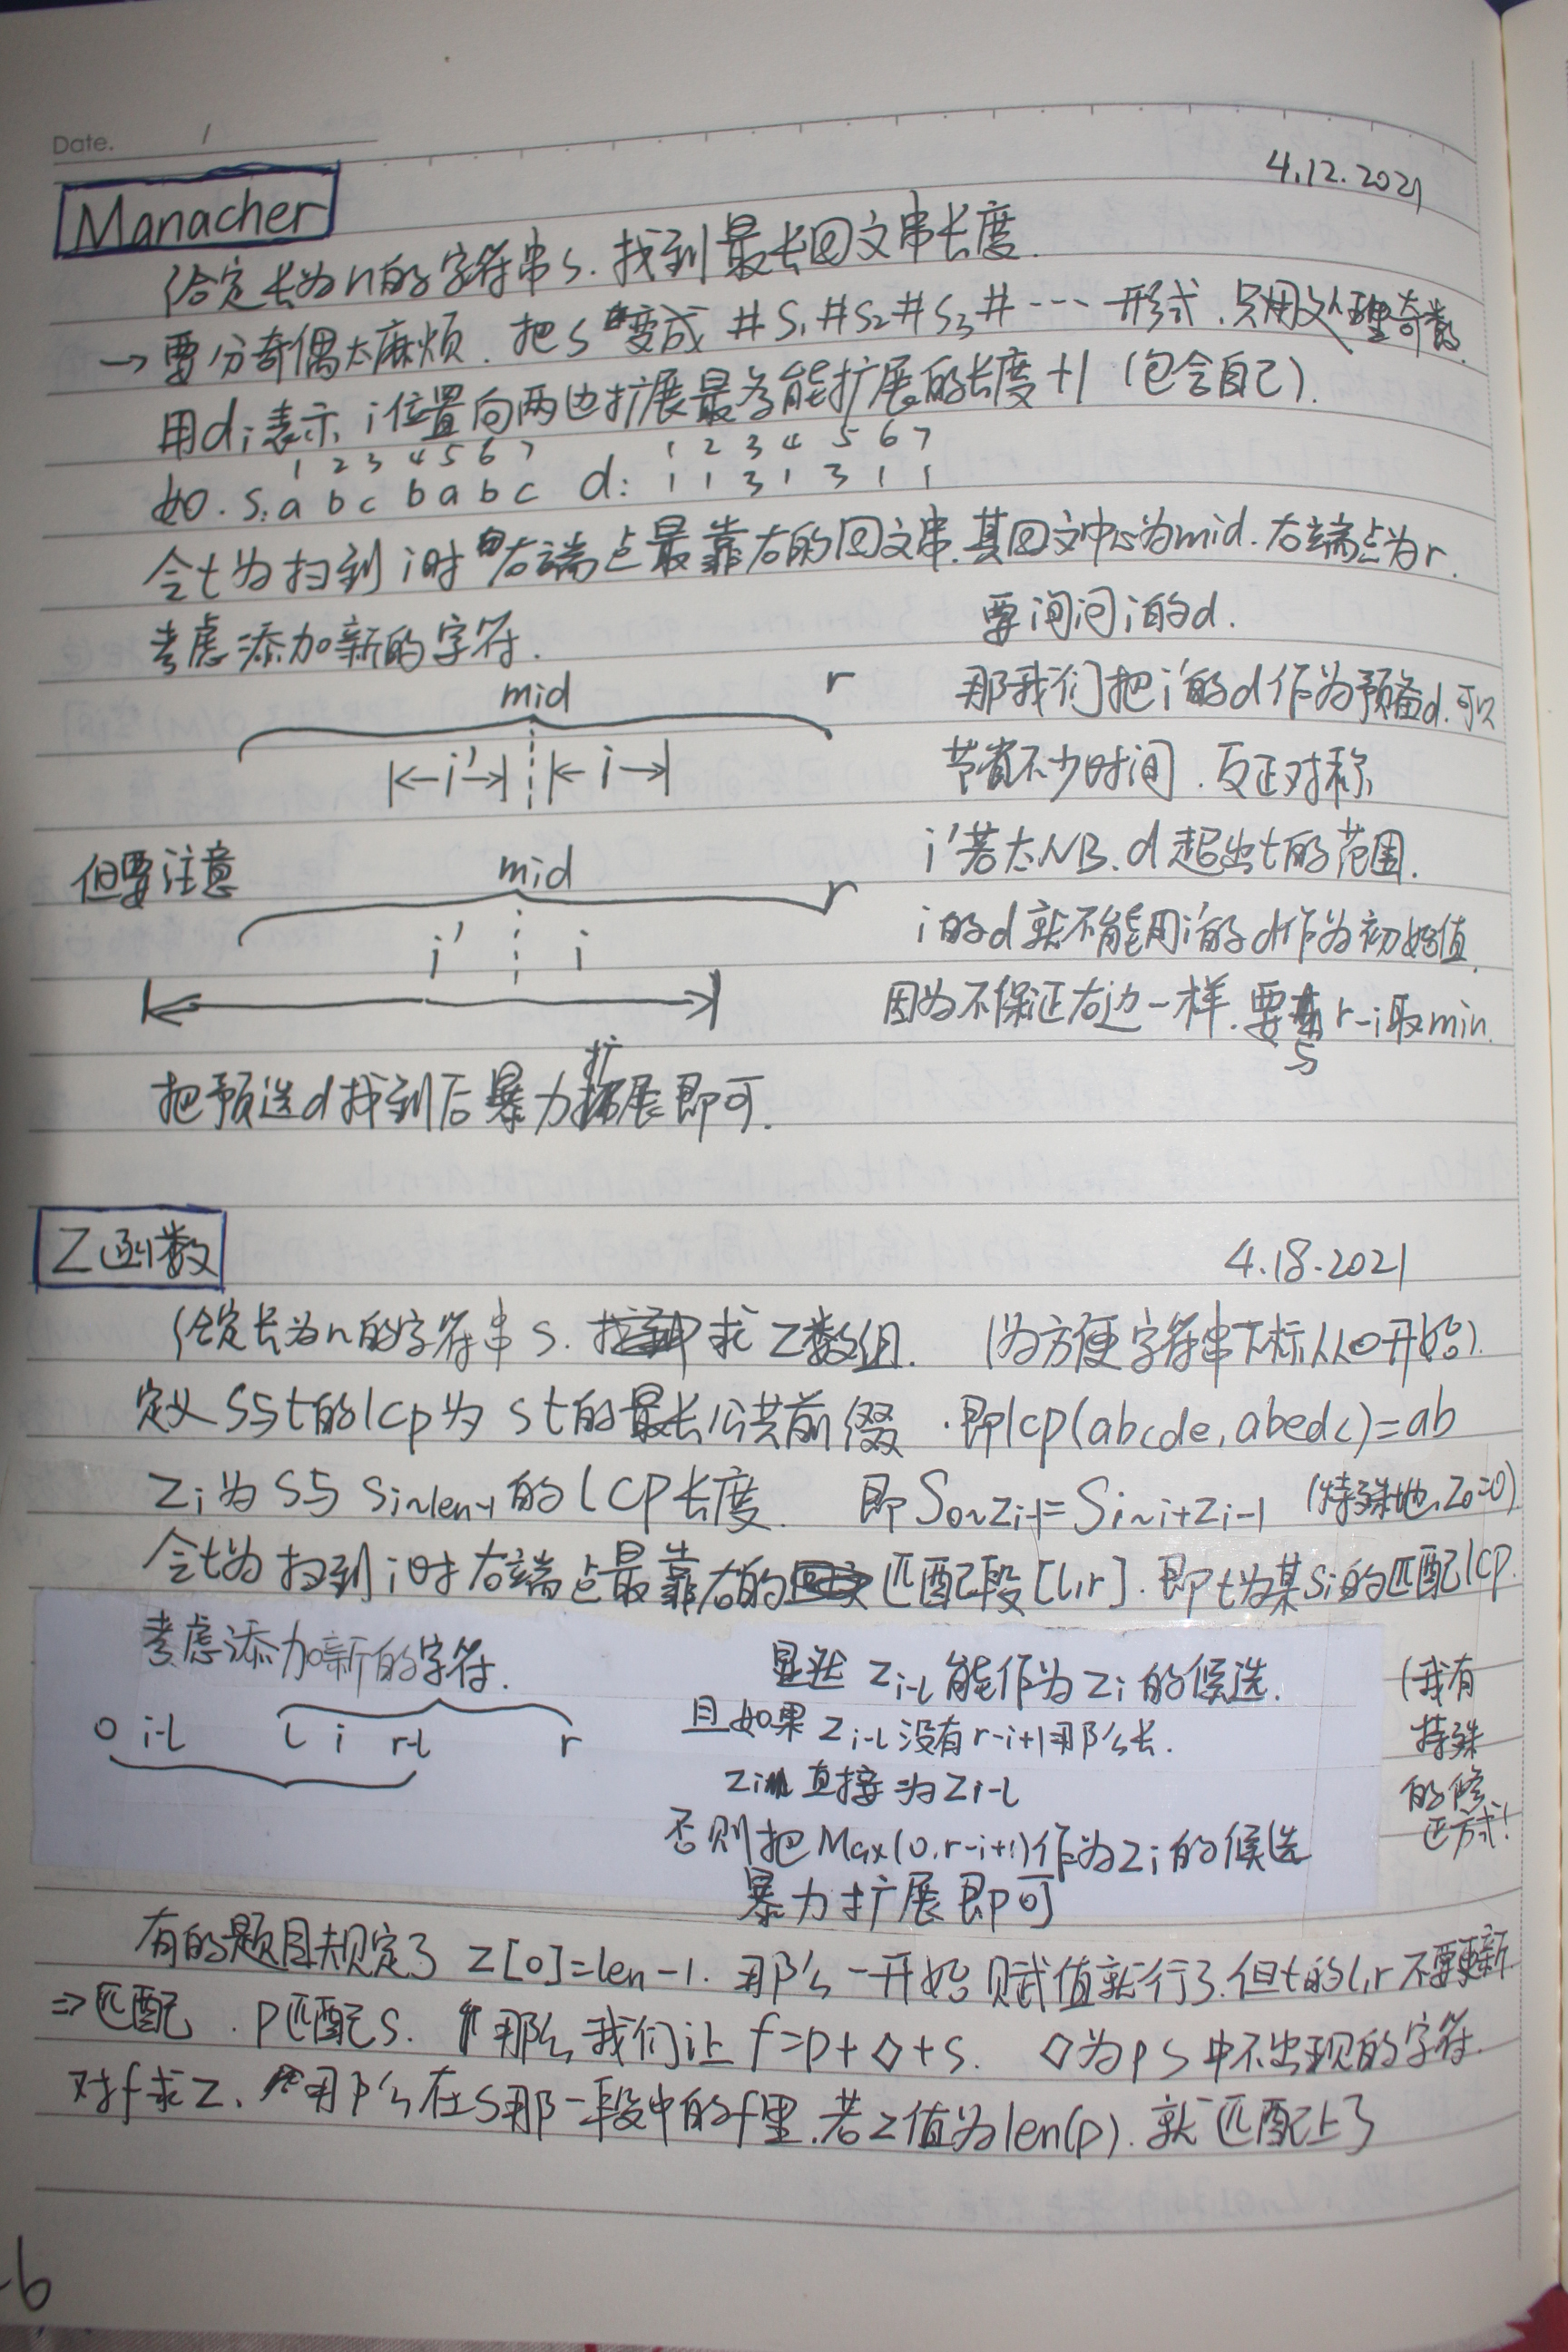 Date. /
4.12.2021
Manacher
给定长为n的字符串s.找到最长回文串长度.
→要分奇偶太麻烦.把s变成 #s₁#s₂#s₃#… 形式.只用处理奇数.
用dᵢ表示i位置向两边扩展最多能扩展的长度+1 (包含自己).
1 2 3 4 5 6 7 1 2 3 4 5 6 7
如.s:a b c b a b c d: 1 1 3 1 3 1 1
令t为扫到i时右端点最靠右的回文串.其回文中心为mid.右端点为r.
考虑添加新的字符.
要询问i的d.
mid r
那我们把i'的d作为预备d.可以
|←i'→| |←i→|
节省不少时间.反正对称
但要注意
mid r
i' i
i'若太NB.d超出t的范围.
i的d就不能用i'的d作为初始值.
因为不保证右边一样.要与r-i取min.
把预选d找到后暴力扩展即可.
Z函数
4.18.2021
给定长为n的字符串s.求Z数组. (为方便字符串下标从0开始).
定义s与t的lcp为st的最长公共前缀.即lcp(abcde,abedc)=ab
Zᵢ为s与s i~len-1的LCP长度. 即S 0~Zi-1=S i~i+Zi-1 (特殊地,Z₀=0)
令t为扫到i时右端点最靠右的匹配段[l,r].即t为某sᵢ的匹配lcp.
考虑添加新的字符.
0 i-l l i r-l r
显然 Z i-l 能作为Zᵢ的候选.
且如果 Z i-l 没有r-i+1那么长.
Zi 直接为Z i-l
否则把Max(0,r-i+1)作为Zᵢ的候选
暴力扩展即可
(我有
特殊
的修
正方式!
有的题目规定了 Z[0]=len-1.那么一开始赋值就行了.但t的l,r不要更新
⇒匹配.P匹配S.那么我们让 f=p+◇+s. ◇为p s中不出现的字符.
对f求Z、那么在s那一段中的f里.若Z值为len(p).就匹配上了